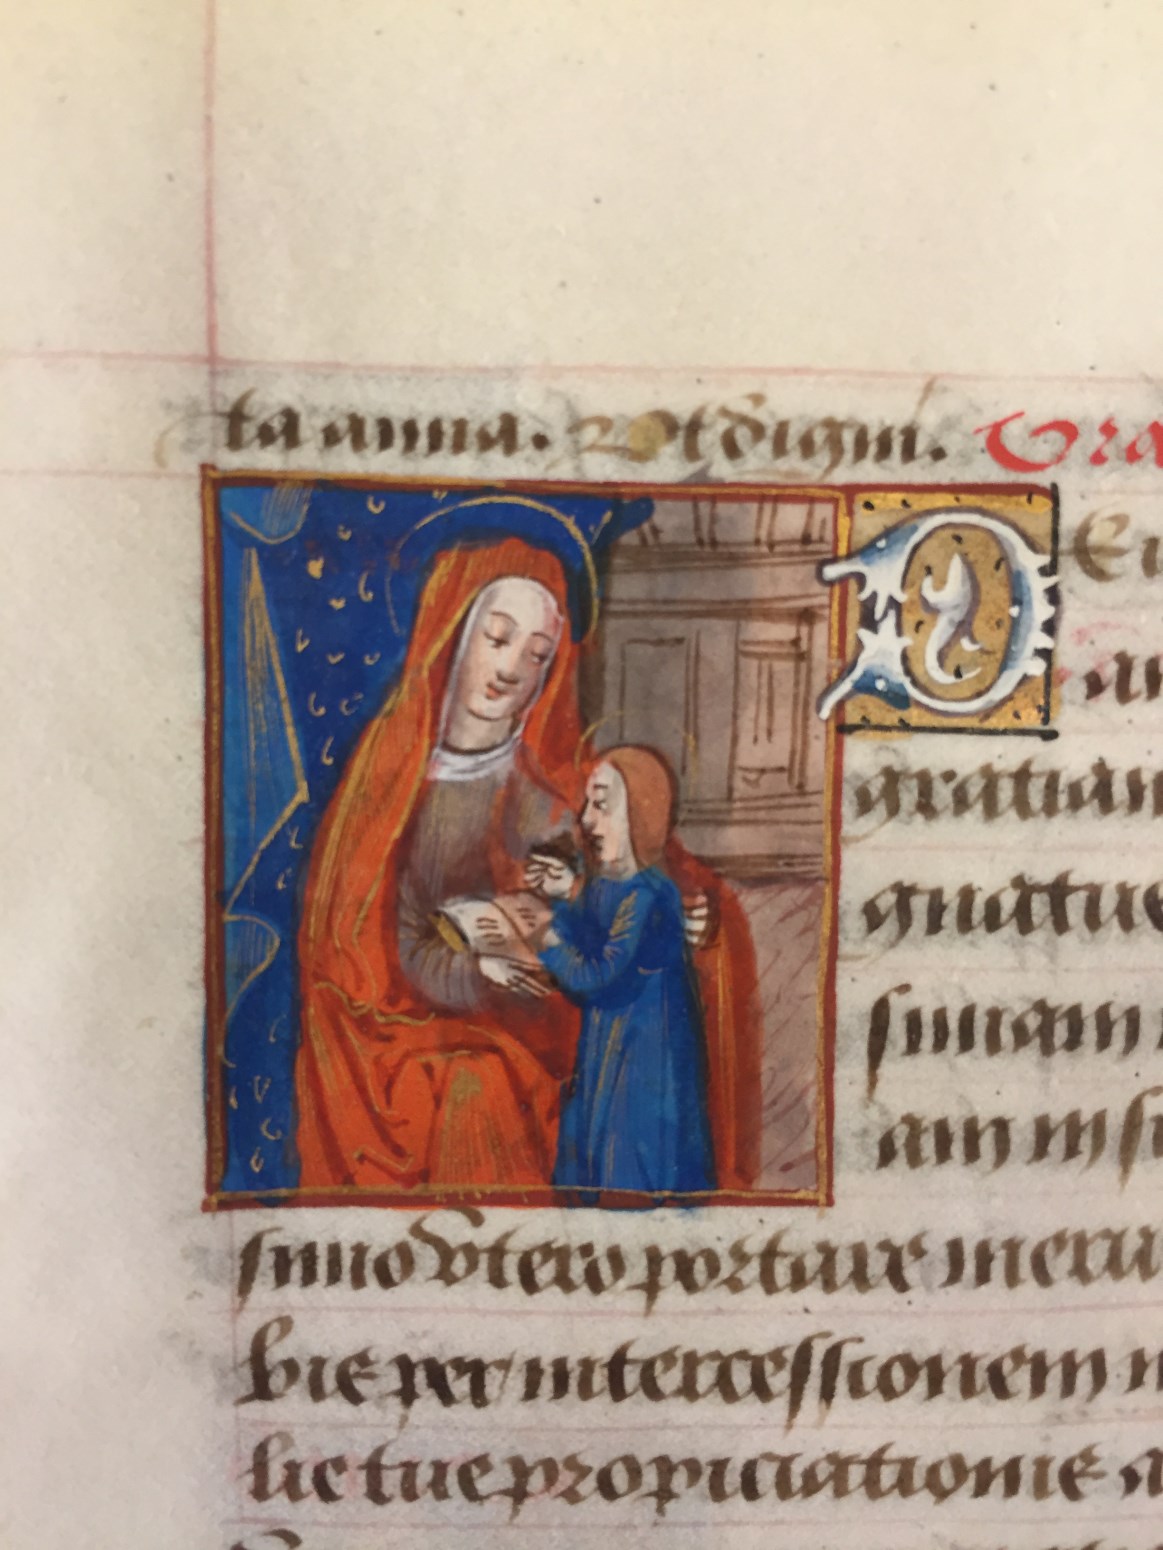 ta anna. Ut digni. Ora
Deu
an
gratiam
gnatus
simam
am in su
simo utero portare meru
bis per intercessionem n
lis tue propiciationis a